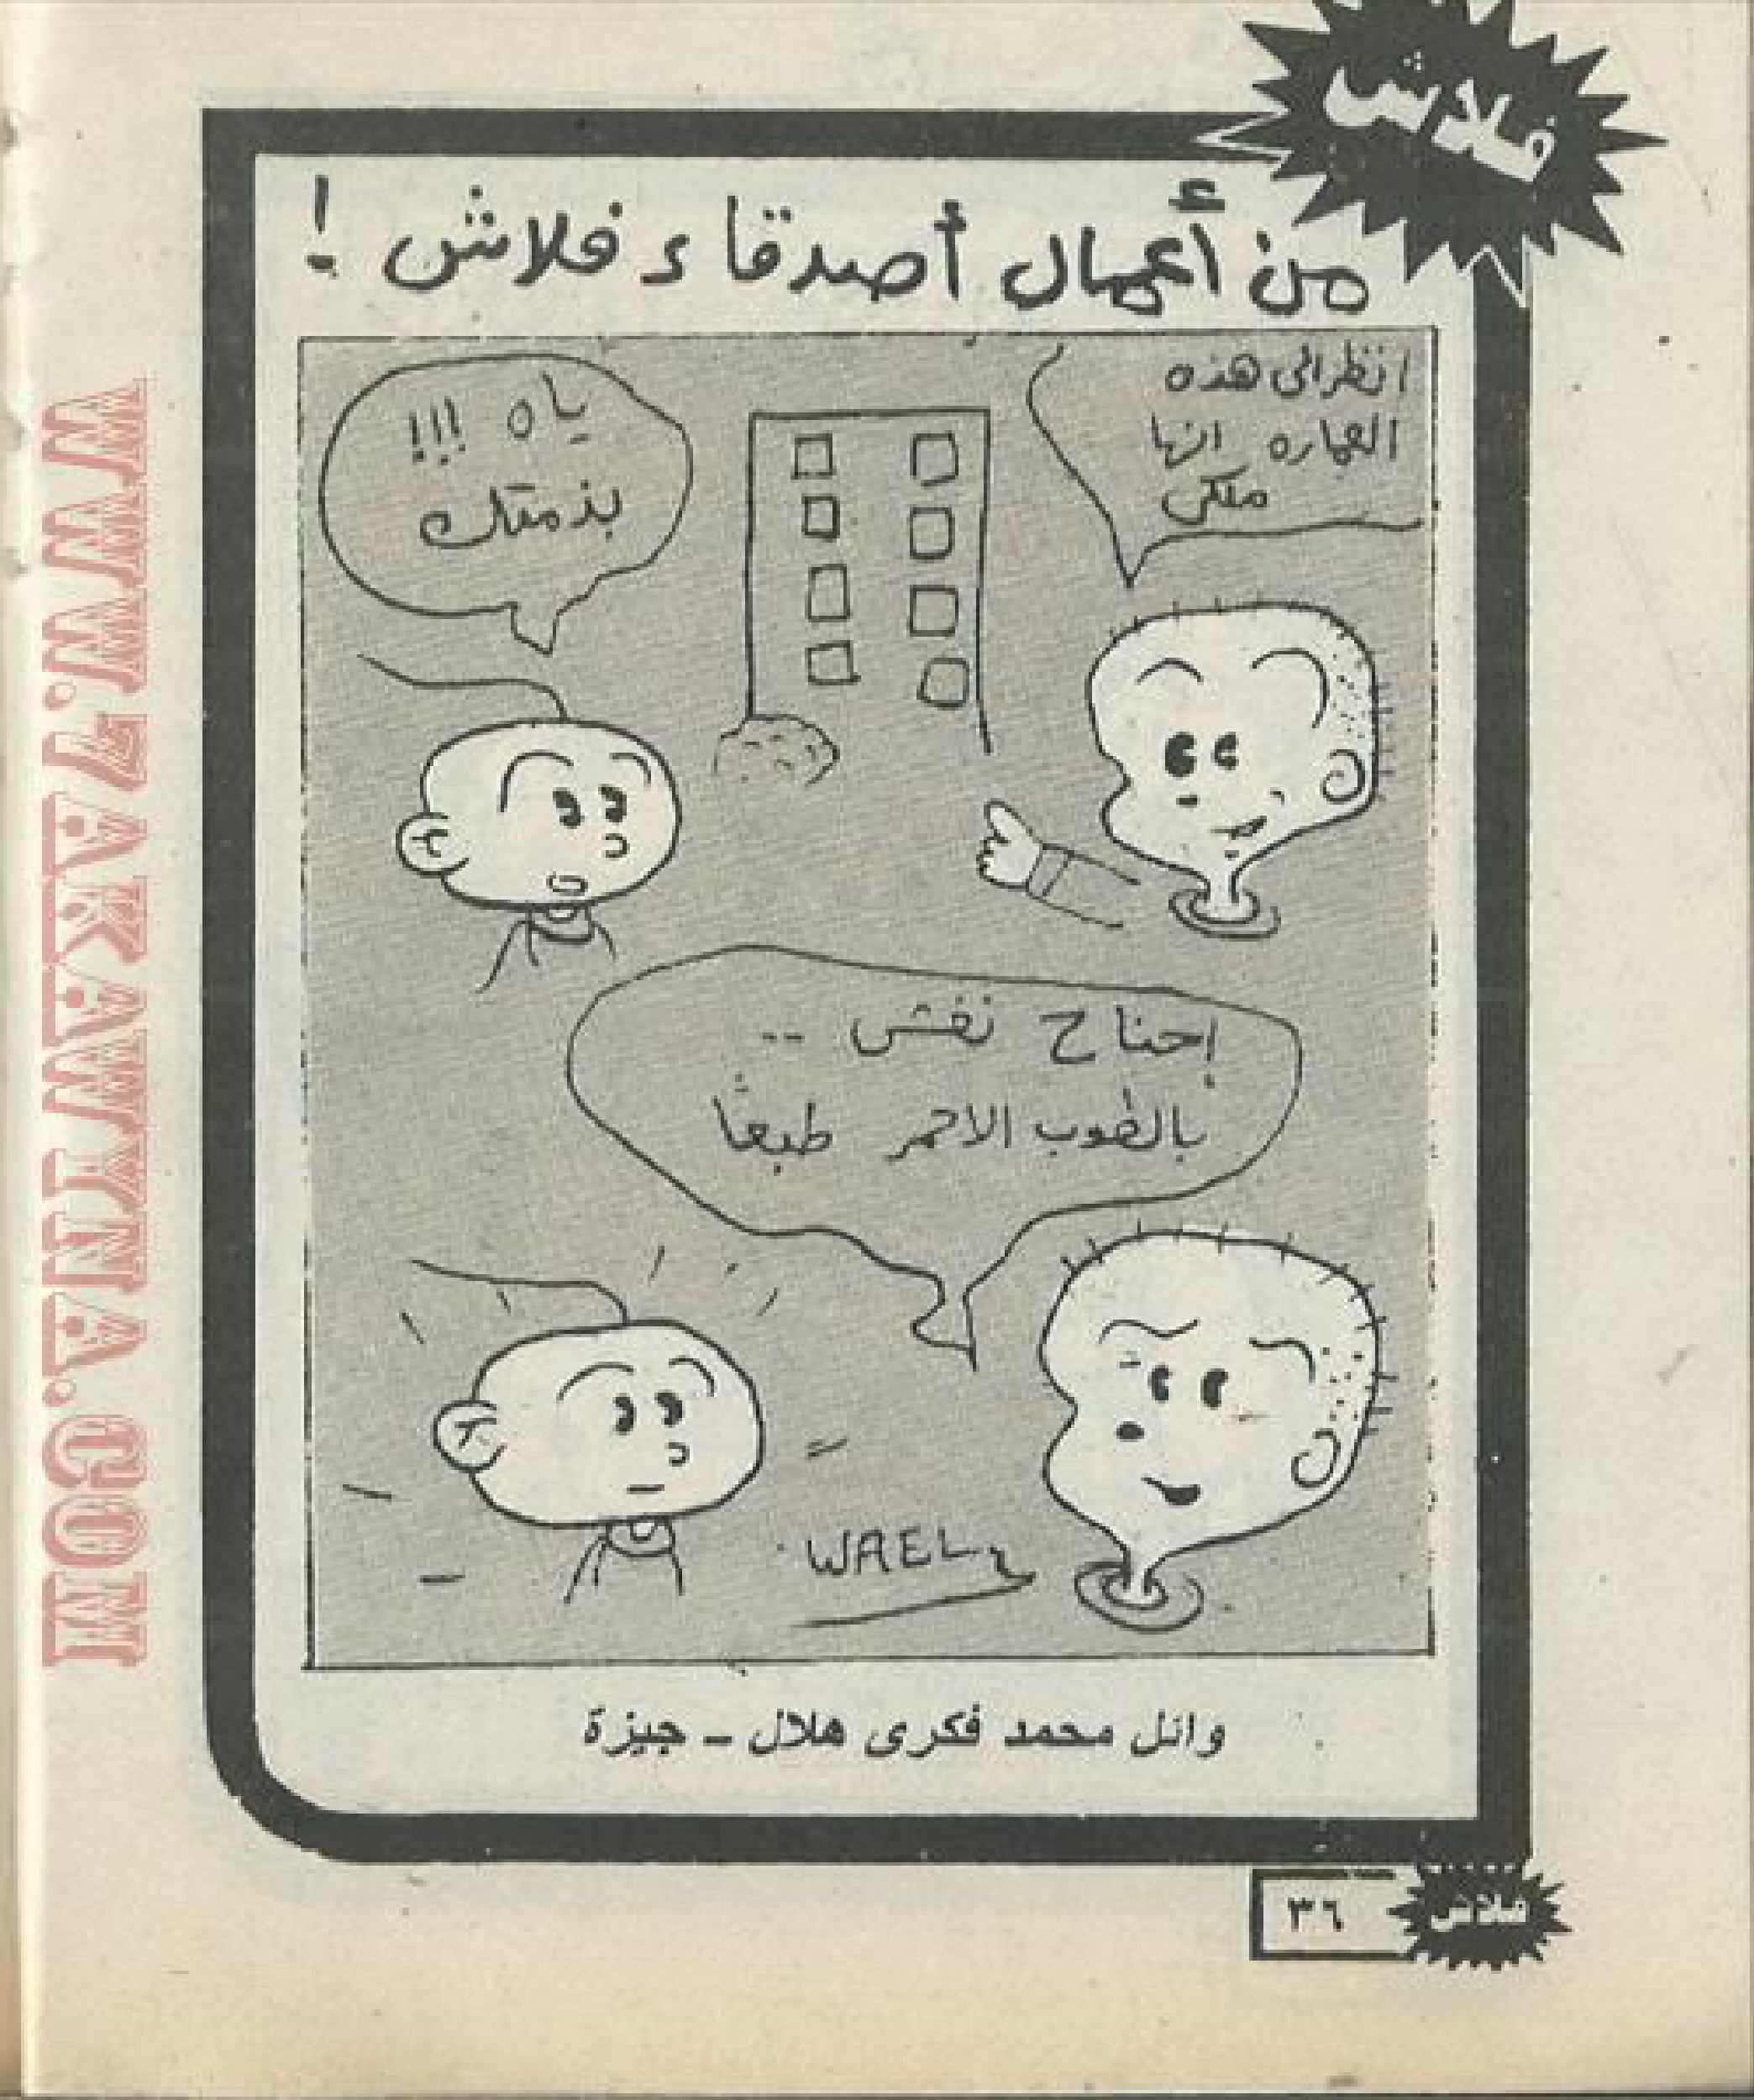 فلاش
من أعمال أصدقاء فلاش !
انظر الى هذه
العماره انها
ملكى
ياه !!!
بذمتك
إحنا ح نغش ..
بالطوب الاحمر طبعاً
WAEL
وائل محمد فكرى هلال - جيزة
٣٦
فلاش
WWW.7AKAWITNA.COM